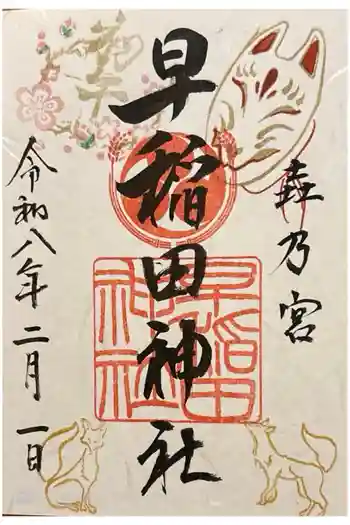 乃宮
早稲田神社
令和八年二月一日
早稲田
神社